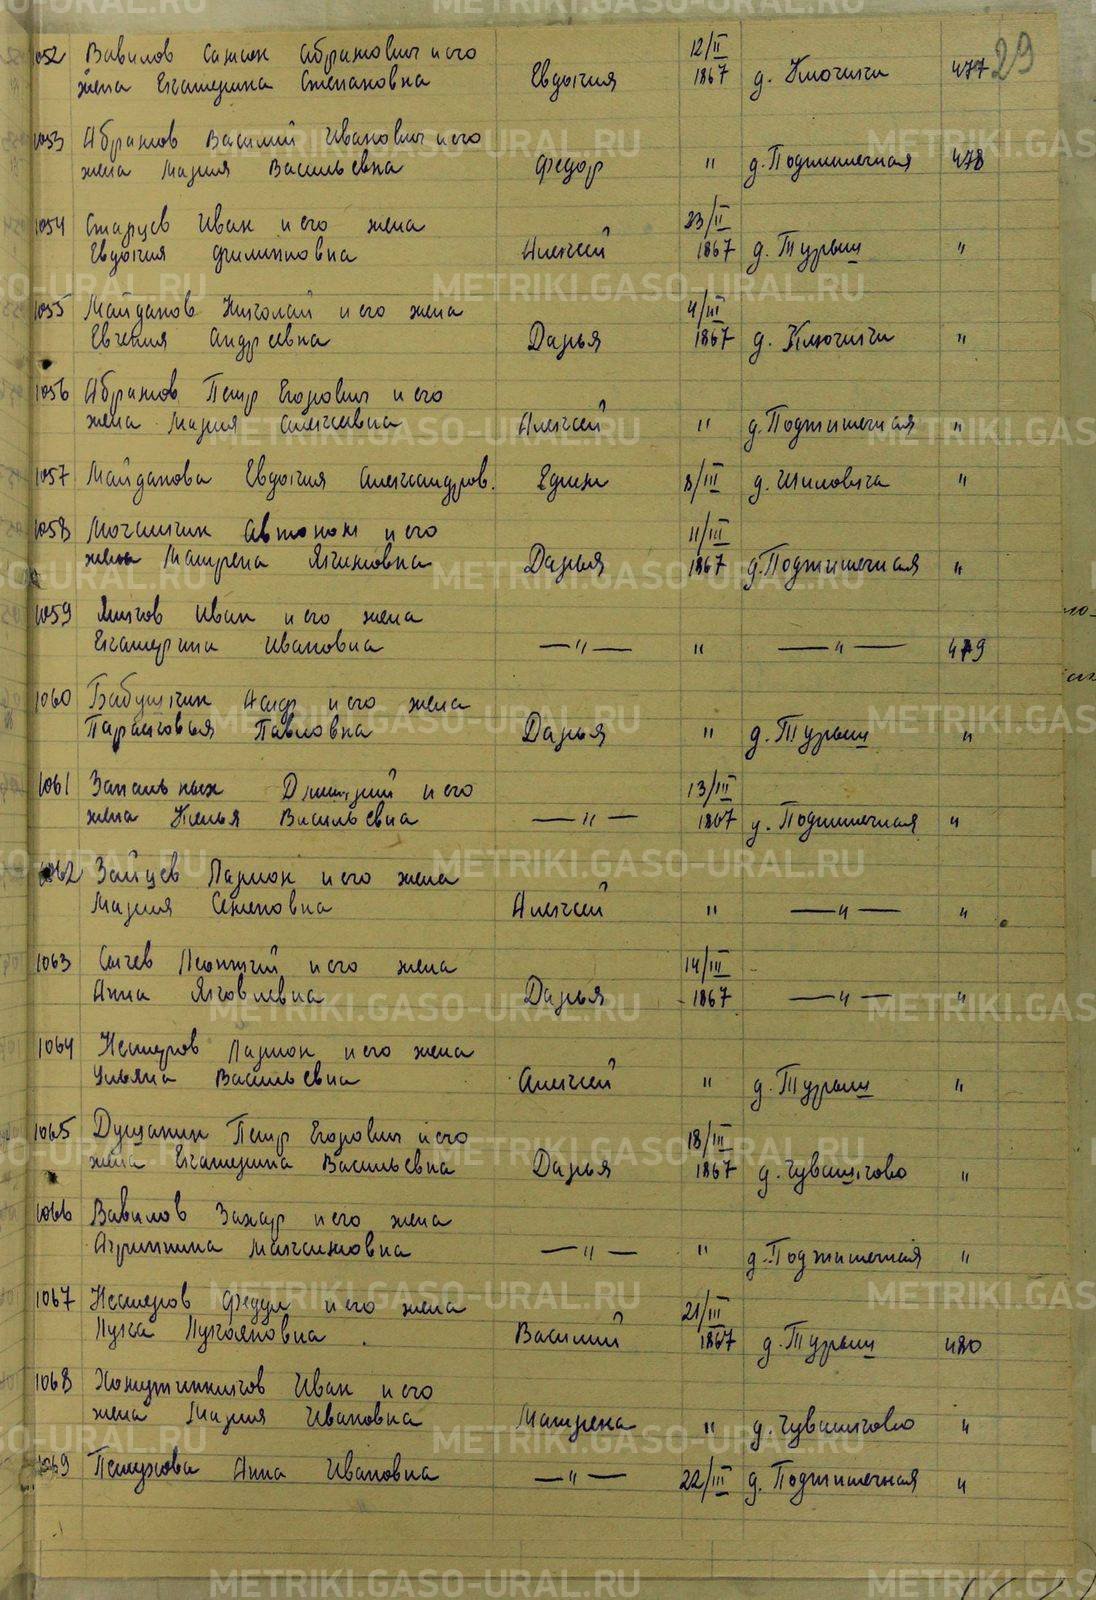 29
1052 Вавилов Самсон Абрамович и его 12/II
жена Екатерина Степановна Евдокия 1867 д. Ключики 477
1053 Абрамов Василий Иванович и его
жена Мария Васильевна Федор " д. Подшишечная 478
1054 Старцев Иван и его жена 23/II
Евдокия Филипповна Алексей 1867 д. Турыш "
1055 Майданов Николай и его жена 4/III
Евгения Андреевна Дарья 1867 д. Ключики "
1056 Абрамов Петр Егорович и его
жена Мария Алексеевна Алексей " д. Подшишечная "
1057 Майданова Евдокия Александров. Ефим 8/III д. Шиловка "
1058 Мочалкин Автоном и его 11/III
жена Матрена Дарья 1867 д. Подшишечная "
1059 Иван и его жена
Екатерина Ивановна — " — " — " — 479
1060 Бабушкин и его жена
Парасковья Павловна Дарья " д. Турыш "
1061 Дмитрий и его 13/III
жена Васильевна — " — 1867 д. Подшишечная "
1062 Зайцев Ларион и его жена
Мария Семеновна Алексей " — " — "
1063 Сычев Леонтий и его жена 14/III
Анна Яковлевна Дарья 1867 — " — "
1064 Нестеров Ларион и его жена
Ульяна Васильевна Алексей " д. Турыш "
1065 Душанин Петр Егорович и его 18/III
жена Екатерина Васильевна Дарья 1867 д. Чувашково "
1066 Вавилов Захар и его жена
Агриппина Максимовна — " — " д. Подшишечная "
1067 Нестеров Федул и его жена 21/III
Лукьяновна Василий 1867 д. Турыш 480
1068 Хомутинников Иван и его
жена Мария Ивановна Матрена " д. Чувашково "
1069 Петухова Анна Ивановна — " — 22/III д. Подшишечная "
METRIKI.GASO-URAL.RU